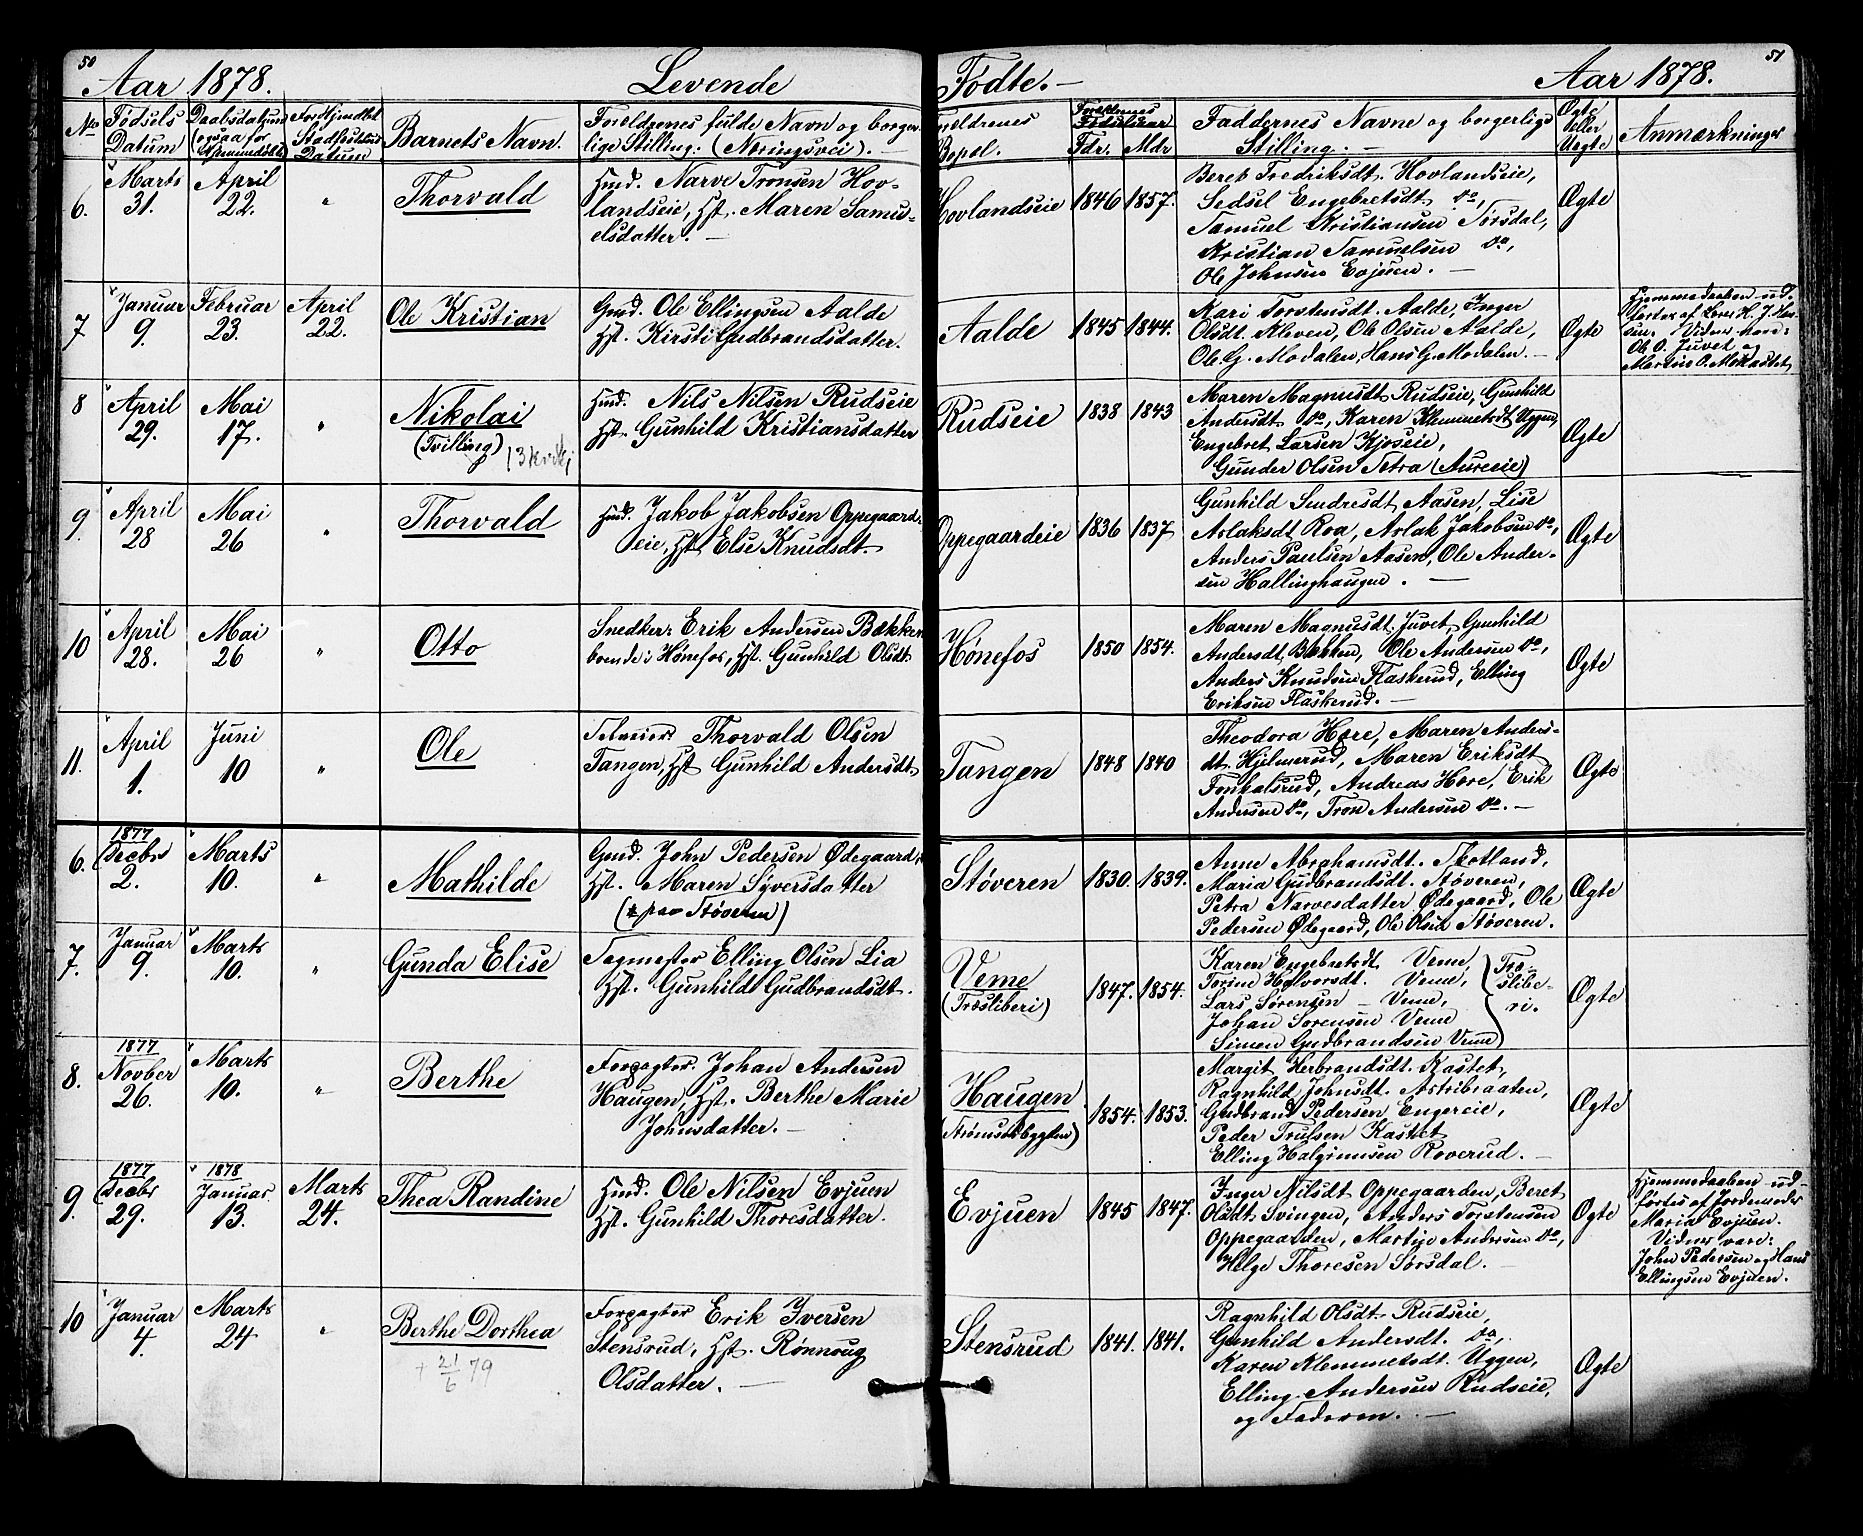 50
Aar 1878. Levende
Fødte.- Aar 1878. 51
No Fødsels Datum
Daabsdatum (ogsaa for
Stadfæstelses Datum
Barnets Navn.
Forældrenes fulde Navn og borger-
lige Stilling: (Næringsvei). -
Forældrenes Bopæl.
Forældrenes Fødselsaar
Fdr. Mdr
Faddernes Navne og borgerlige
Stilling. -
Ægte eller Uægte
Anmærkninger
6. Marts 31. April 22. "
Thorvald
Hmd. Narve Tronsen Hov-
landseie, Hst. Maren Samu-
elsdatter. -
Hovlandseie 1846 1857.
Beret Fredriksdt. Hovlandseie,
Sedsel Engebretsdt do,
Samuel Kristiansen Sørsdal,
Kristian Samuelsen do,
Ole Johnsen Evjuen. -
Ægte
7 Januar 9. Februar 23. April 22.
Ole Kristian
Gmd. Ole Ellingsen Aalde
Hst. Kirsti Gudbrandsdatter.
Aalde 1845 1844.
Kari Torstensdt. Aalde, Inger
Olsdt. Kleven, Ole Olsen Aalde,
Ole G. Modalen, Hans G. Modalen. -
Ægte
Hjemmedaaben ud-
førtes af Lærer H. J. Han-
sen. Vidner vare:
Ole O. Juvet og
Martin O.
8 April 29. Mai 17. "
Nikolai
(Tvilling)
Hmd. Nils Nilsen Rudseie
Hst. Gunhild Kristiansdatter
Rudseie 1838 1843
Maren Magnusdt Rudseie, Gunhild
Andersdt do, Karen Klemmetsdt Uggen,
Engebret Larsen Kjoseie,
Gunder Olsen Setra (Aureeie)
Ægte
9. April 28 Mai 26 "
Thorvald
Hmd. Jakob Jakobsen Oppegaard-
eie, Hst. Else Knudsdt.
Oppegaardeie 1836 1837
Gunhild Sindresdt Aasen, Lise
Aslaksdt Roa, Aslak Jakobsen do,
Anders Paulsen Aasen, Ole Ander-
sen Hallinghaugen. -
Ægte
10 April 28. Mai 26 "
Otto
Snedker: Erik Andersen Bækken
boende i Hønefos, Hst. Gunhild Olsdt.
Hønefos 1850 1854.
Maren Magnusdt. Juvet, Gunhild
Andersdt, Bækken, Ole Andersen do,
Anders Knudsen Flaskerud, Elling
Eriksen Flaskerud. -
Ægte
11. April 1. Juni 10 "
Ole
Selveier Thorvald Olsen
Tangen, Hst Gunhild Andersdt
Tangen 1848 1840
Theodora Hore, Maren Anders-
dt. Hjelmerud, Maren Eriksdt
Fonkalsrud, Andreas Hore, Erik
Andersen do, Tron Andersen do. -
Ægte
6. 1877 Decbr 2. Marts 10. "
Mathilde
Gmd. John Pedersen Ødegaard,
Hst. Maren Syversdatter
(paa Støveren)
Støveren 1830. 1839.
Anne Abrahamsdt. Skotland,
Maria Gudbrandsdt. Støveren,
Petra Narvesdatter Ødegaard, Ole
Pedersen Ødegaard, Ole Olsen Støveren.
Ægte
7. Januar 9. Marts 10. "
Gunda Elise
Sagmester Elling Olsen Lia
Hst. Gunhild Gudbrandsdt.
Veme (Træsliberi) 1847. 1854.
Karen Engebretsdt Veme
Torine Halvorsdt. Veme,
Lars Sørensen - Veme,
Johan Sørensen Veme
Simen Gudbrandsen Veme
Træ-
slibe-
ri.
Ægte
8. 1877 Novber 26. Marts 10. "
Berthe
Forpagter Johan Andersen
Haugen, Hst. Berthe Marie
Johnsdatter. -
Haugen (Strømsoddbygden) 1854. 1853.
Margit Herbrandsdt. Kastet,
Ragnhild Johnsdt. Astribraaten,
Gudbrand Pedersen Engereie,
Peder Trulsen Kastet
Elling Halgrimsen Roverud. -
Ægte
9. 1877 Decbr 29. 1878 Januar 13. Marts 24.
Thea Randine
Hmd. Ole Nilsen Evjuen
Hst. Gunhild Thoresdatter.
Evjuen 1845 1847.
Inger Nilsdt Oppegaarden, Beret
Olsdt. Svingen, Anders Torstensen
Oppegaarden, Martin Andersen do,
Helge Thoresen Sørsdal. -
Ægte
Hjemmedaaben ud-
førtes af Jordemoder
Maria Evjuen.
Vidner vare:
John Pedersen og Hans
Ellingsen Evjuen.
10 Januar 4. Marts 24 "
Berthe Dorthea
+ 21/6 79
Forpagter Erik Iversen
Stensrud, Hst. Rønnoug
Olsdatter. -
Stensrud 1841. 1841.
Ragnhild Olsdt. Rudseie,
Gunhild Andersdt. do,
Karen Klemmetsdt. Uggen,
Elling Andersen Rudseie,
og Faderen. -
Ægte